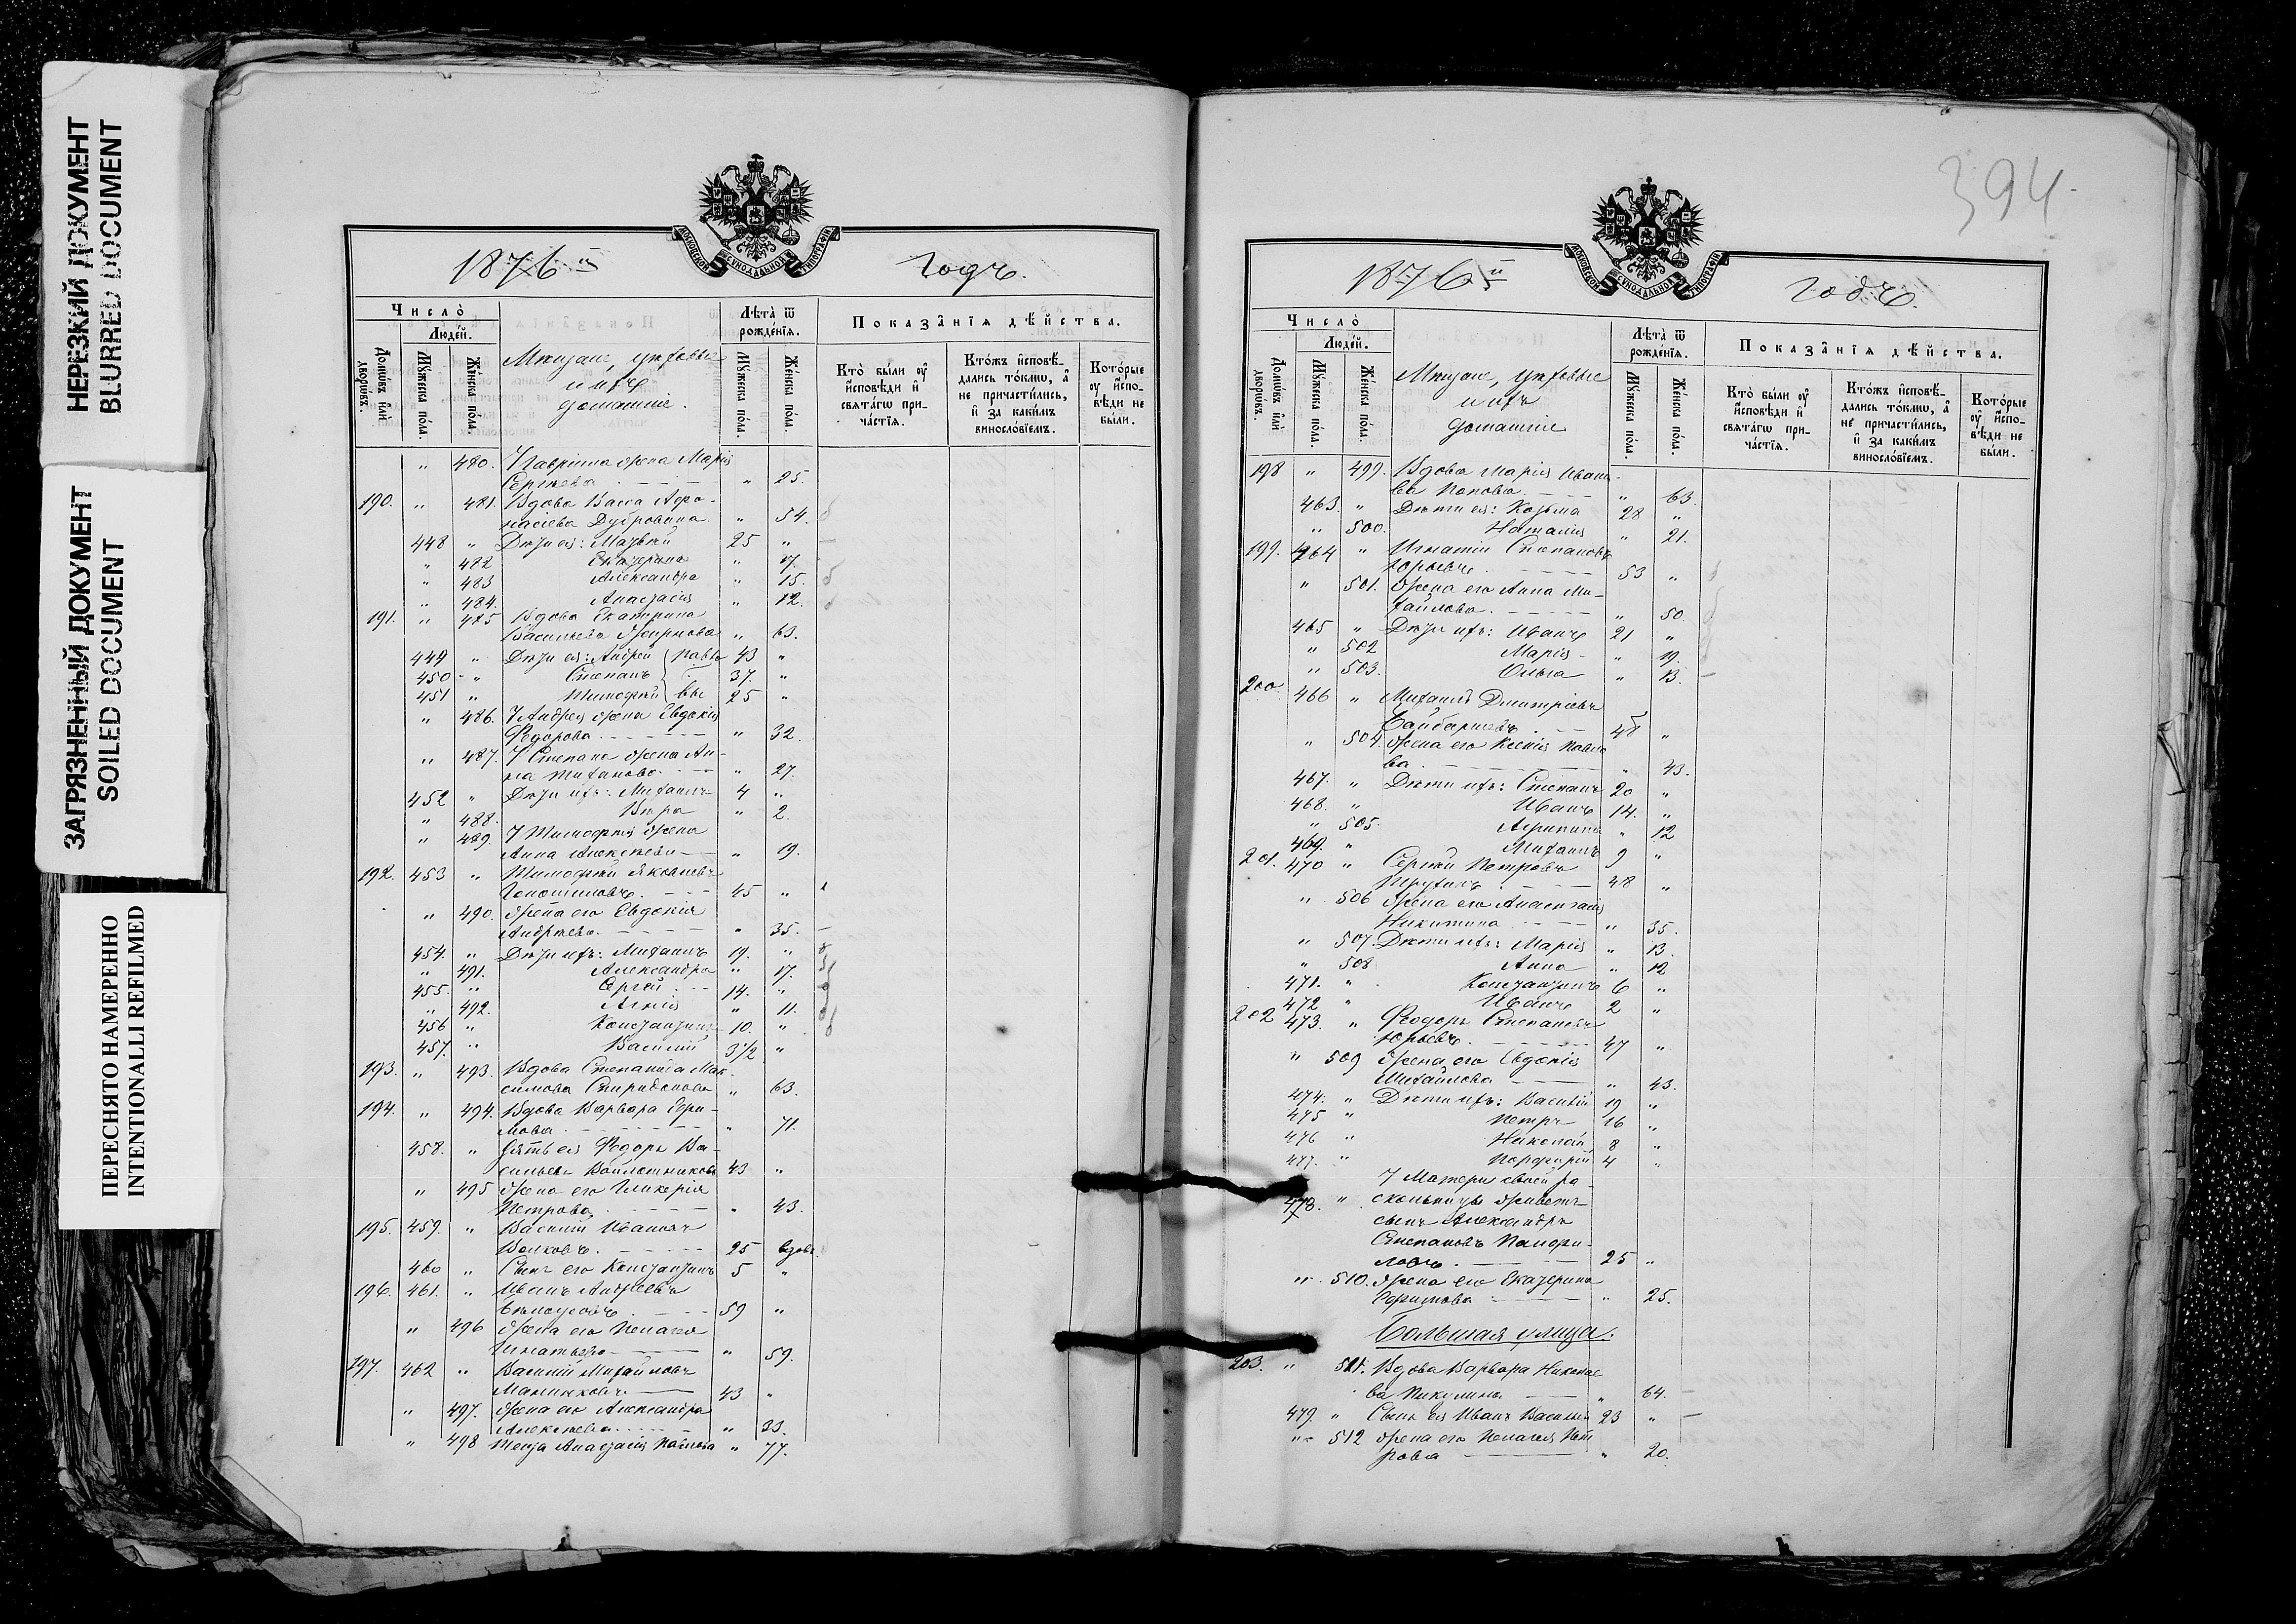 НЕРЕЗКИЙ ДОКУМЕНТ
BLURRED DOCUMENT
ЗАГРЯЗНЕННЫЙ ДОКУМЕНТ
SOILED DOCUMENT
ПЕРЕСНЯТО НАМЕРЕННО
INTENTIONALLI REFILMED
МОСКОВСКОЙ СѴНОДАЛЬНОЙ ТИПОГРАФІИ
1876й годъ.
Число̀
Люде́й.
Домѡ́въ и҆лѝ дворѡ́въ.
Мꙋ́жеска по́ла.
Же́нска по́ла.
Мѣщане, цеховые
и ихъ
домашніе.
Лѣ́та ѿ рожде́нїѧ.
Мꙋ́жеска по́ла.
Же́нска по́ла.
Показа̑нїѧ дѣ́йства.
Кто̀ бы́ли оу҆ и҆сповѣ́ди и҆ свѧта́гѡ прича́стїѧ.
Кто́жъ и҆сповѣ́дались то́кмѡ, а҆ не причасти́лись, и҆ за каки́мъ винослові́емъ.
Кото́рые оу҆ и҆сповѣ́ди не бы́ли.
" 480. У Гавріила жена Марія
Сергѣева " 25.
190. " 481. Вдова Васса Афа-
насіева Дубровина " 54.
448 " Дѣти ея: Матвѣй 25 "
" 482 Екатерина " 17.
" 483 Александра " 15.
" 484. Анастасія " 12.
191. " 485 Вдова Екатерина
Васильева " 63.
449 " Дѣти ея: Андрей 43 "
450 " Степанъ 37. "
451 " Тимофей 25 "
" 486. У Андрея жена Евдокія
Ѳедорова " 32.
" 487. У Степана жена Ан-
на " 27.
452 " Дѣти ихъ: Михаилъ 4 "
" 488. Вѣра " 2.
" 489. У Тимофея жена
Анна Алексѣева " 19.
192. 453 " Тимофей Яковлевъ
45 "
" 490. Жена его Евдокія
Андреева " 35.
454. " Дѣти ихъ: Михаилъ 19. "
" 491. Александра " 17.
455. " Сергѣй 14. "
" 492. Агнія " 11.
456 " Константинъ 10. "
457. " Василій 3½ "
193. " 493. Вдова Степанида Мак-
симова Спиридонова " 63.
194. " 494. Вдова Варвара Ефи-
мова " 71.
458. " Зять ея Ѳедоръ Ва-
сильевъ Войлошниковъ 43 "
" 495 Жена его Гликерія
Петрова " 43.
195. 459. " Василій Ивановъ
Волковъ 25 вдовъ
460 " Сынъ его Константинъ 5 "
196. 461. " Иванъ Андреевъ
Бѣлоусовъ 59 "
" 496 Жена его Пелагея
Игнатьева " 59.
197. 462 " Василій Михайловъ
43 "
" 497. Жена его Александра
Алексѣева " 33.
" 498 Теща Анастасія Павлова " 77.
394.
МОСКОВСКОЙ СѴНОДАЛЬНОЙ ТИПОГРАФІИ
1876й годъ.
Число̀
Люде́й.
Домѡ́въ и҆лѝ дворѡ́въ.
Мꙋ́жеска по́ла.
Же́нска по́ла.
Мѣщане, цеховые
и ихъ
домашніе
Лѣ́та ѿ рожде́нїѧ.
Мꙋ́жеска по́ла.
Же́нска по́ла.
Показа̑нїѧ дѣ́йства.
Кто̀ бы́ли оу҆ и҆сповѣ́ди и҆ свѧта́гѡ прича́стїѧ.
Кто́жъ и҆сповѣ́дались то́кмѡ, а҆ не причасти́лись, и҆ за каки́мъ винослові́емъ.
Кото́рые оу҆ и҆сповѣ́ди не бы́ли.
198 " 499. Вдова Марія Ивано-
ва Попова " 63.
463. " Дѣти ея: Козьма 28 "
" 500. Наталія " 21.
199. 464 " Игнатій Степановъ
Юрьевъ 53 "
" 501. Жена его Анна Ми-
хайлова " 50.
465 " Дѣти ихъ: Иванъ 21 "
" 502 Марія " 19.
" 503. Ольга " 13.
200. 466 " Михаилъ Дмитріевъ
48 "
" 504. Жена его Ксенія Павло
ва " 43.
467. " Дѣти ихъ: Степанъ 20 "
468. " Иванъ 14. "
" 505. Агрипина " 12
469. " Михаилъ 9 "
201. 470 " Сергѣй Петровъ
48 "
" 506 Жена его Анастасія
Никитина " 35.
" 507. Дѣти ихъ: Марія " 13.
" 508 Анна " 12
471. " Константинъ 6 "
472 " Иванъ 2 "
202 473. " Ѳеодоръ Степановъ
Юрьевъ 47 "
" 509 Жена его Евдокія
Михайлова " 43.
474. " Дѣти ихъ: Василій 19 "
475 " Петръ 16 "
476 " Николай 8 "
477. " Порфирій 4 "
У Матери своей ра-
478. " скольницы живетъ
сынъ Александръ
Степановъ Памфи-
ловъ 25 "
" 510. Жена его Екатерина
Ефимова " 25.
Большая улица.
203. " 511. Вдова Варвара Николае
ва Пикулина " 64.
479. " Сынъ ея Иванъ Васильев 23 "
" 512 Жена его Пелагея Пет
рова " 20.